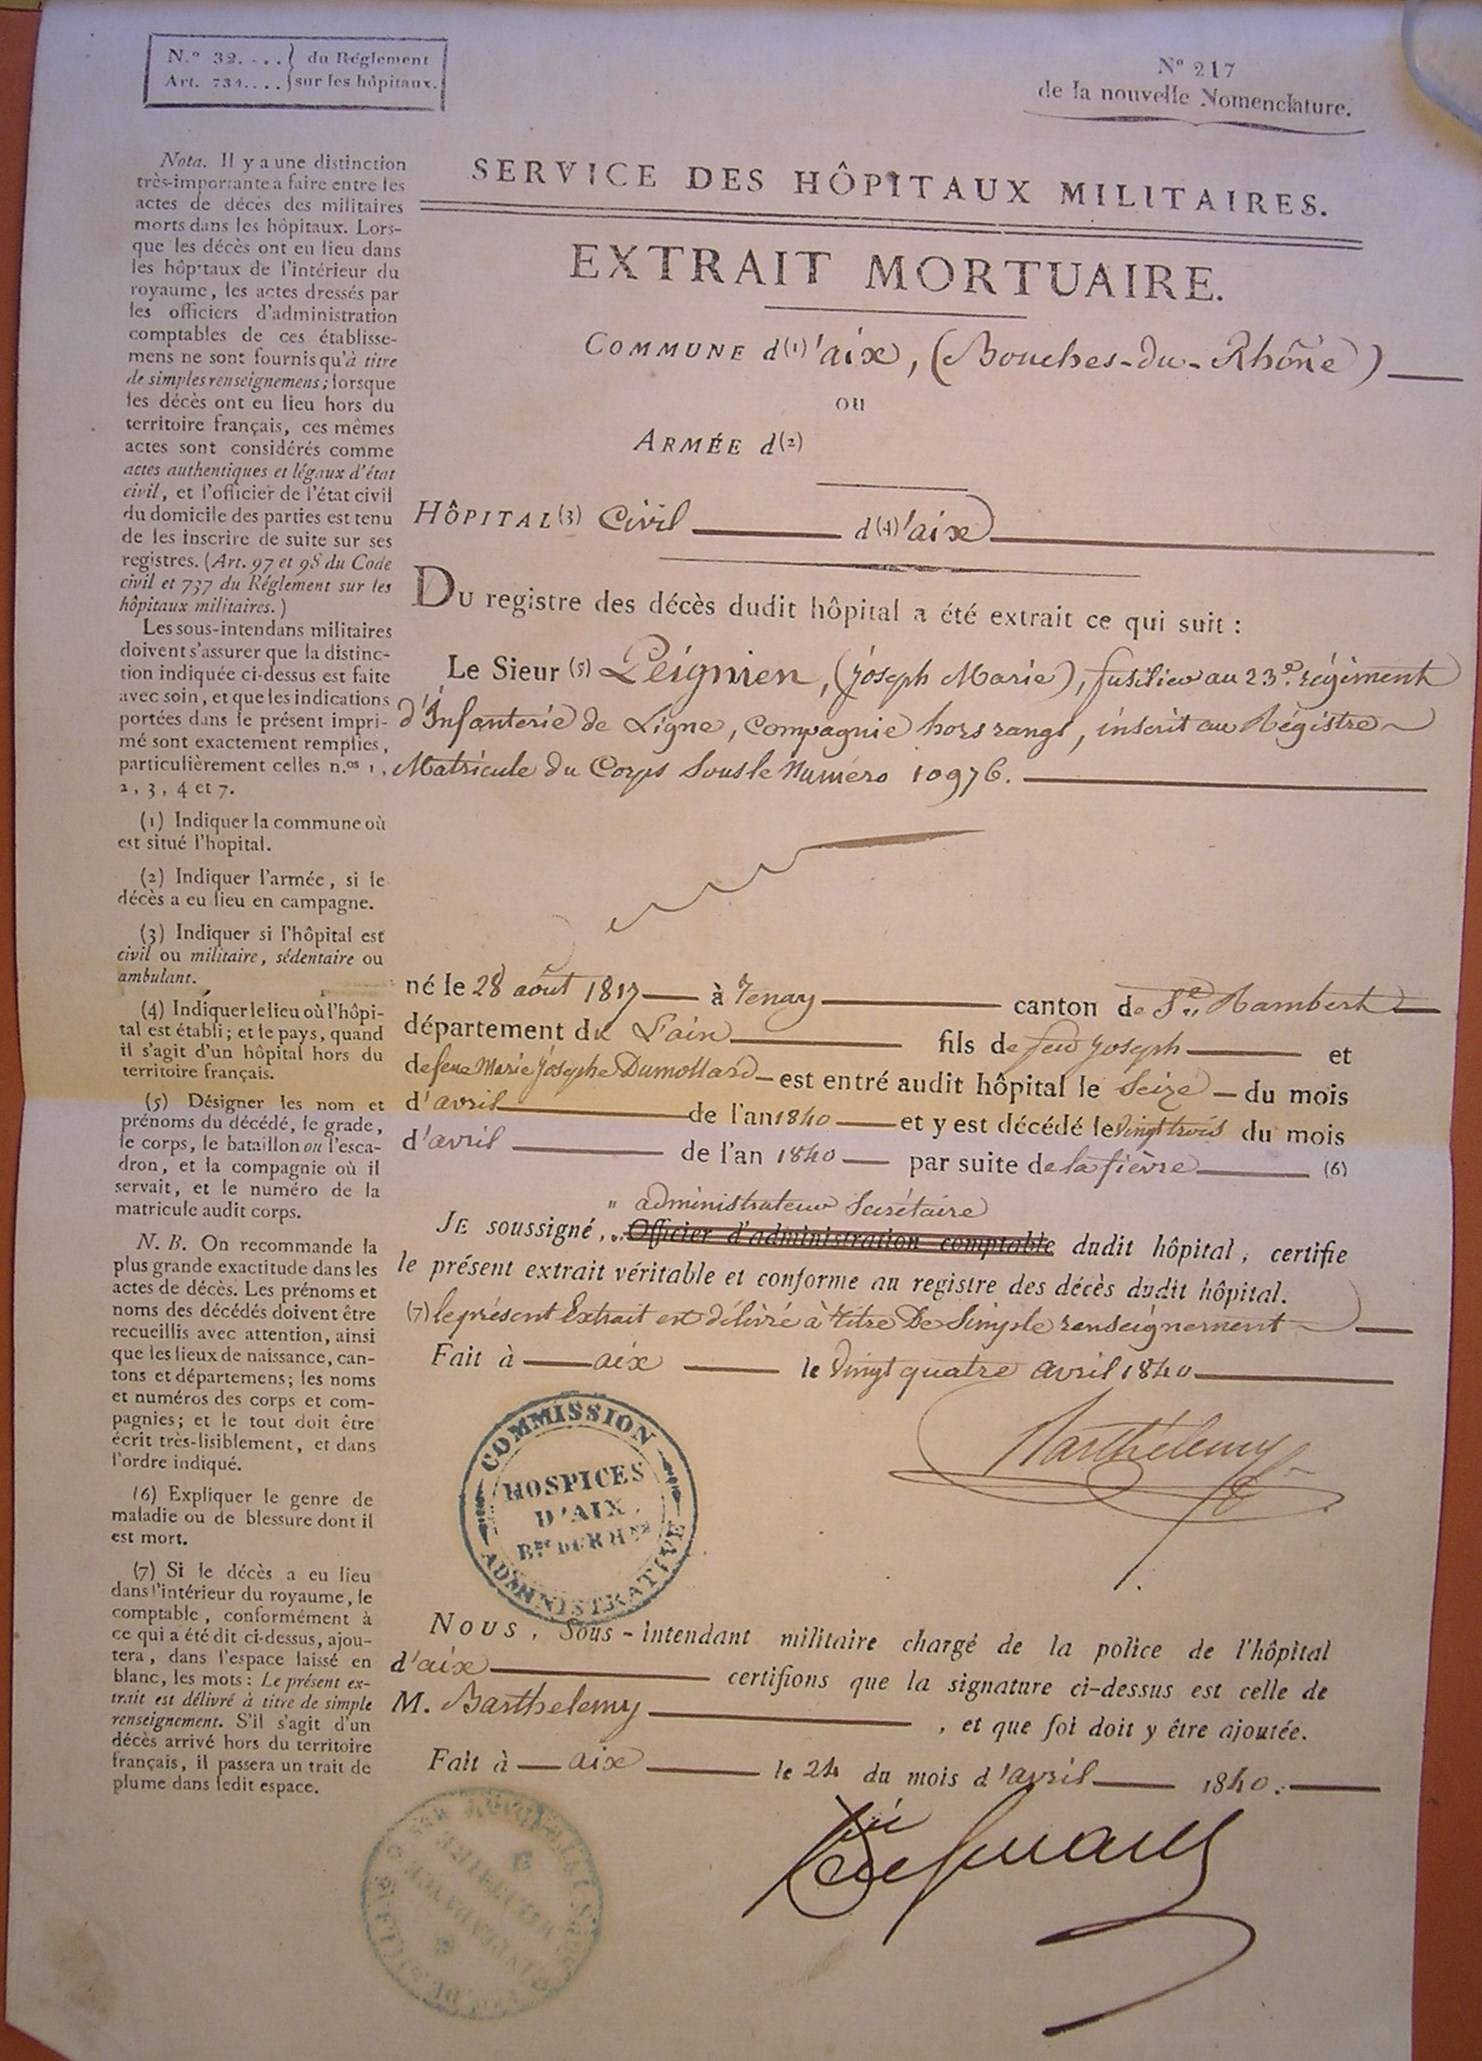 N.º 32. . . . } du Réglement
Art. 734. . . . } sur les hôpitaux.
Nº 217
de la nouvelle Nomenclature.
Nota. Il y a une distinction
très-importante à faire entre les
actes de décès des militaires
morts dans les hôpitaux. Lors-
que les décès ont eu lieu dans
les hôpitaux de l'intérieur du
royaume, les actes dressés par
les officiers d'administration
comptables de ces établisse-
mens ne sont fournis qu'à titre
de simples renseignemens ; lorsque
les décès ont eu lieu hors du
territoire français, ces mêmes
actes sont considérés comme
actes authentiques et légaux d'état
civil, et l'officier de l'état civil
du domicile des parties est tenu
de les inscrire de suite sur ses
registres. (Art. 97 et 98 du Code
civil et 737 du Réglement sur les
hôpitaux militaires.)
Les sous-intendans militaires
doivent s'assurer que la distinc-
tion indiquée ci-dessus est faite
avec soin, et que les indications
portées dans le présent impri-
mé sont exactement remplies,
particulièrement celles n.os 1,
2, 3, 4 et 7.
(1) Indiquer la commune où
est situé l'hopital.
(2) Indiquer l'armée, si le
décès a eu lieu en campagne.
(3) Indiquer si l'hôpital est
civil ou militaire, sédentaire ou
ambulant.
(4) Indiquer le lieu où l'hôpi-
tal est établi ; et le pays, quand
il s'agit d'un hôpital hors du
territoire français.
(5) Désigner les nom et
prénoms du décédé, le grade,
le corps, le bataillon ou l'esca-
dron, et la compagnie où il
servait, et le numéro de la
matricule audit corps.
N. B. On recommande la
plus grande exactitude dans les
actes de décès. Les prénoms et
noms des décédés doivent être
recueillis avec attention, ainsi
que les lieux de naissance, can-
tons et départemens ; les noms
et numéros des corps et com-
pagnies ; et le tout doit être
écrit très-lisiblement, et dans
l'ordre indiqué.
(6) Expliquer le genre de
maladie ou de blessure dont il
est mort.
(7) Si le décès a eu lieu
dans l'intérieur du royaume, le
comptable, conformément à
ce qui a été dit ci-dessus, ajou-
tera, dans l'espace laissé en
blanc, les mots : Le présent ex-
trait est délivré à titre de simple
renseignement. S'il s'agit d'un
décès arrivé hors du territoire
français, il passera un trait de
plume dans ledit espace.
SERVICE DES HÔPITAUX MILITAIRES.
EXTRAIT MORTUAIRE.
COMMUNE d(1)'aix, (Bouches-du-Rhône)
OU
ARMÉE d(2)
HÔPITAL (3) Civil d(4)'aix
DU registre des décès dudit hôpital a été extrait ce qui suit :
Le Sieur (5) Peignien, (joseph Marie), fusilier au 23e. régiment
d'Infanterie de Ligne, Compagnie hors rangs, inscrit au Régistre
Matricule du Corps Sous le Numéro 10976.
né le 28 août 1817 à Tenay canton de St. Rambert
département du L'ain fils de feu joseph et
de feue Marie josephe Dumollard est entré audit hôpital le Seize du mois
d'avril de l'an 1840 et y est décédé le vingt trois du mois
d'avril de l'an 1840 par suite de la fièvre (6)
" administrateur Secrétaire
JE soussigné, Officier d'administration comptable dudit hôpital, certifie
le présent extrait véritable et conforme au registre des décès dudit hôpital.
(7) le présent Extrait est délivré à titre De Simple renseignement
Fait à aix le Vingt quatre avril 1840
Barthélemy
COMMISSION
HOSPICES
D'AIX
ADMINISTRATIVE
NOUS, Sous-Intendant militaire chargé de la police de l'hôpital
d'aix certifions que la signature ci-dessus est celle de
M. Barthelemy, et que foi doit y être ajoutée.
Fait à aix le 24 du mois d'avril 1840.